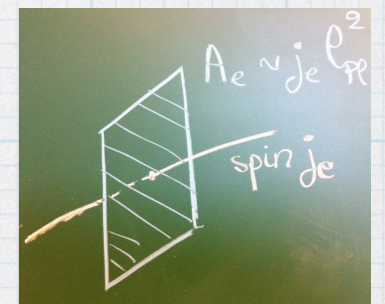 Aₑ ~ jₑ ℓ²ₚₗ
spin jₑ